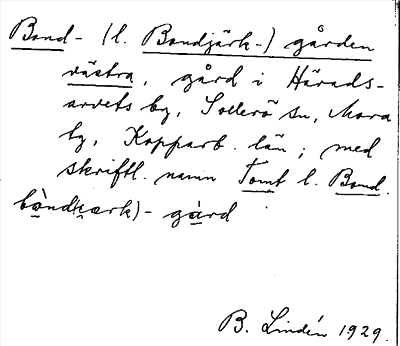 Bond- (l. Bondjärk-) gården
västra, gård i Härads-
arvets by, Sollerö sn, Mora
tg, Kopparb. län; med
skriftl. namn Tomt l. Bond.
bònd(kærk)- gård
B. Lindén 1929.